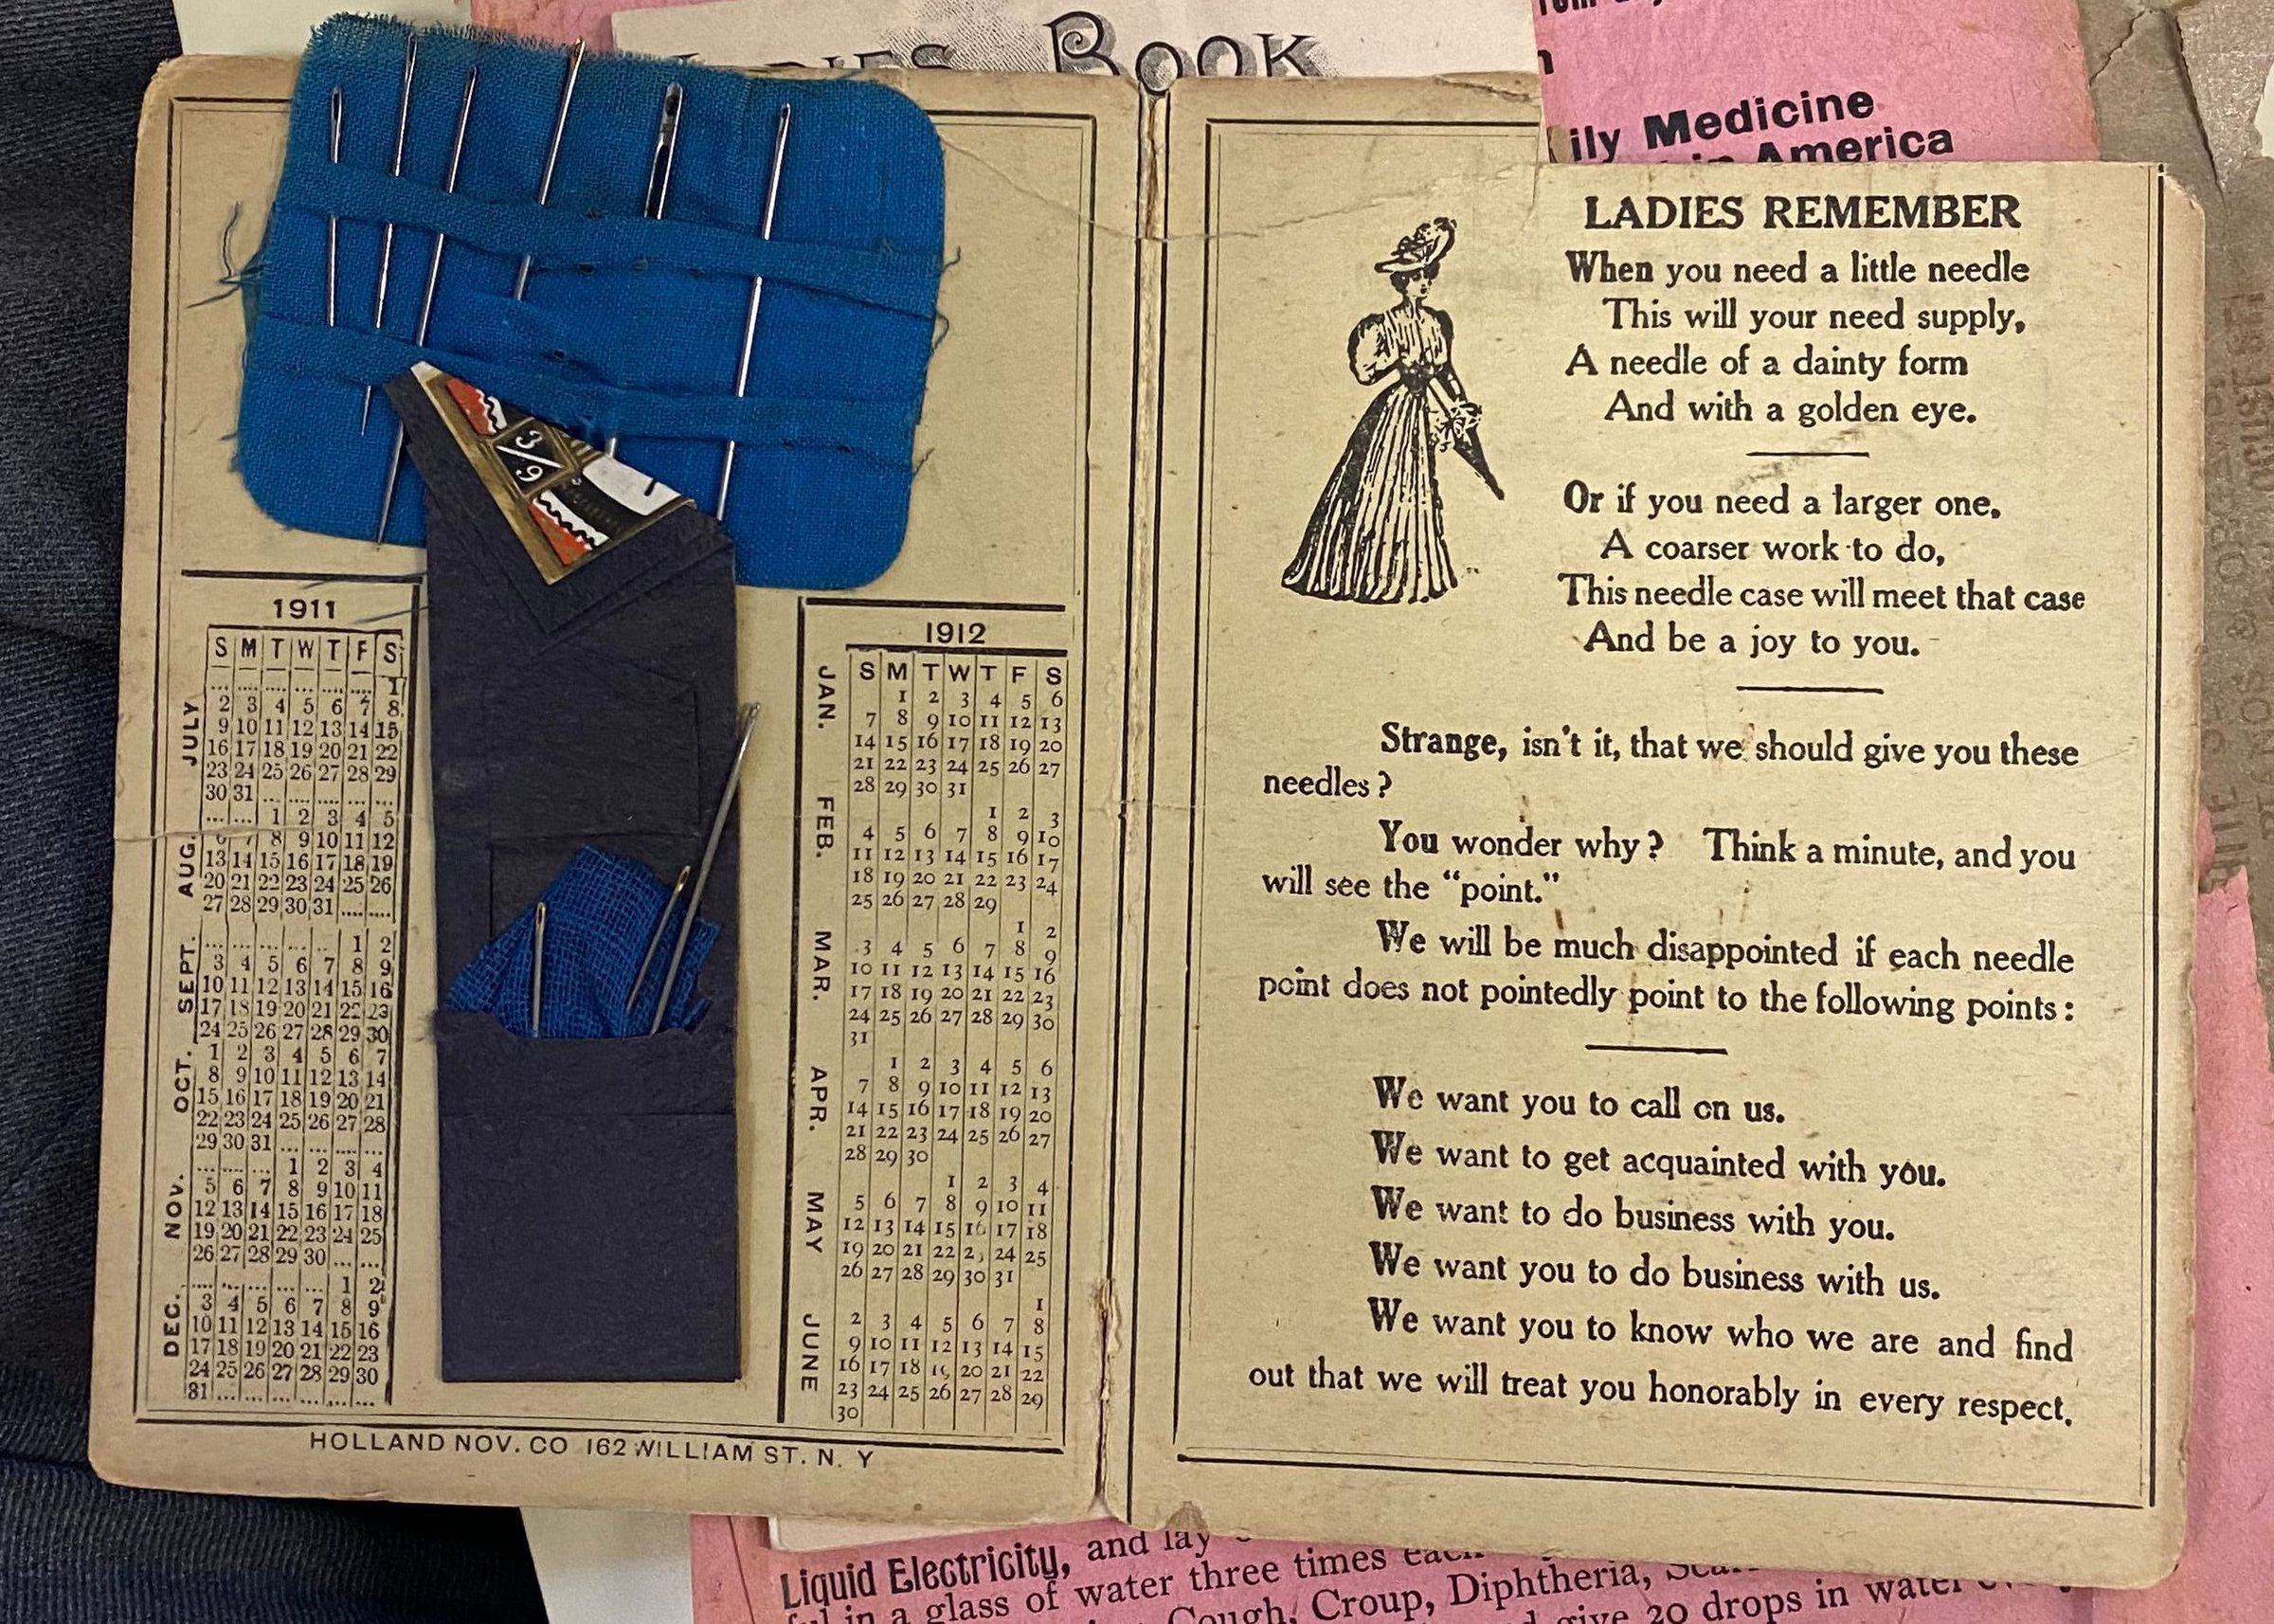 BOOK
ily Medicine
in America
3/9
1911
S M T W T F S
JULY
.... .... .... .... .... .... 1
2 3 4 5 6 7 8
9 10 11 12 13 14 15
16 17 18 19 20 21 22
23 24 25 26 27 28 29
30 31 .... .... .... .... ....
AUG.
.... .... 1 2 3 4 5
6 7 8 9 10 11 12
13 14 15 16 17 18 19
20 21 22 23 24 25 26
27 28 29 30 31 .... ....
SEPT.
.... .... .... .... .... 1 2
3 4 5 6 7 8 9
10 11 12 13 14 15 16
17 18 19 20 21 22 23
24 25 26 27 28 29 30
OCT.
1 2 3 4 5 6 7
8 9 10 11 12 13 14
15 16 17 18 19 20 21
22 23 24 25 26 27 28
29 30 31 .... .... .... ....
NOV.
.... .... .... 1 2 3 4
5 6 7 8 9 10 11
12 13 14 15 16 17 18
19 20 21 22 23 24 25
26 27 28 29 30 .... ....
DEC.
.... .... .... .... .... 1 2
3 4 5 6 7 8 9
10 11 12 13 14 15 16
17 18 19 20 21 22 23
24 25 26 27 28 29 30
31 .... .... .... .... .... ....
1912
S M T W T F S
JAN.
1 2 3 4 5 6
7 8 9 10 11 12 13
14 15 16 17 18 19 20
21 22 23 24 25 26 27
28 29 30 31
FEB.
1 2 3
4 5 6 7 8 9 10
11 12 13 14 15 16 17
18 19 20 21 22 23 24
25 26 27 28 29
MAR.
1 2
3 4 5 6 7 8 9
10 11 12 13 14 15 16
17 18 19 20 21 22 23
24 25 26 27 28 29 30
31
APR.
1 2 3 4 5 6
7 8 9 10 11 12 13
14 15 16 17 18 19 20
21 22 23 24 25 26 27
28 29 30
MAY
1 2 3 4
5 6 7 8 9 10 11
12 13 14 15 16 17 18
19 20 21 22 23 24 25
26 27 28 29 30 31
JUNE
1
2 3 4 5 6 7 8
9 10 11 12 13 14 15
16 17 18 19 20 21 22
23 24 25 26 27 28 29
30
HOLLAND NOV. CO 162 WILLIAM ST. N. Y
LADIES REMEMBER
When you need a little needle
This will your need supply,
A needle of a dainty form
And with a golden eye.
Or if you need a larger one,
A coarser work to do,
This needle case will meet that case
And be a joy to you.
Strange, isn't it, that we should give you these
needles?
You wonder why? Think a minute, and you
will see the "point."
We will be much disappointed if each needle
point does not pointedly point to the following points:
We want you to call on us.
We want to get acquainted with you.
We want to do business with you.
We want you to do business with us.
We want you to know who we are and find
out that we will treat you honorably in every respect.
Liquid Electricity, and lay
in a glass of water three times
Cough, Croup, Diphtheria,
give 20 drops in water